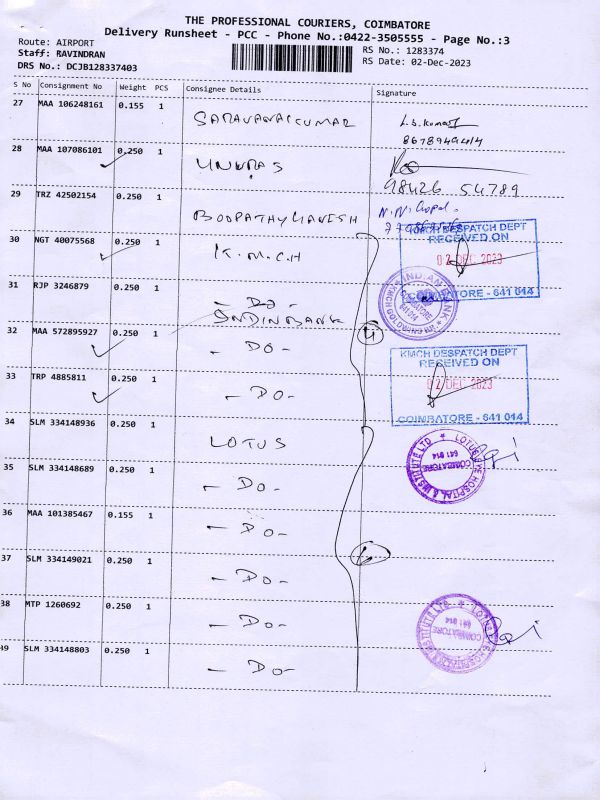 THE PROFESSIONAL COURIERS, COIMBATORE
Delivery Runsheet - PCC - Phone No.:0422-3505555 - Page No.:3
Route: AIRPORT
Staff: RAVINDRAN
DRS No.: DCJB128337403
RS No.: 1283374
RS Date: 02-Dec-2023
S No Consignment No Weight PCS Consignee Details Signature
27 MAA 106248161 0.155 1 SARAVANAKUMAR
8678949414
28 MAA 107086101 0.250 1
98426 54789
29 TRZ 42502154 0.250 1 BOOPATHY GANESH N.N. Gopal.
30 NGT 40075568 0.250 1 K.M.C.H
KMCH DESPATCH DEPT
RECEIVED ON
02 DEC 2023
COIMBATORE - 641 014
31 RJP 3246879 0.250 1 - DO -
INDIAN BANK
COIMBATORE
641 014
32 MAA 572895927 0.250 1 - DO -
4
33 TRP 4885811 0.250 1 - DO -
KMCH DESPATCH DEPT
RECEIVED ON
02 DEC 2023
COIMBATORE - 641 014
34 SLM 334148936 0.250 1 LOTUS
LOTUS EYE HOSPITAL & INSTITUTE LTD
COIMBATORE
641 014
35 SLM 334148689 0.250 1 - DO -
36 MAA 101385467 0.155 1 - DO -
37 SLM 334149021 0.250 1 - DO -
38 MTP 1260692 0.250 1 - DO -
LOTUS EYE HOSPITAL & INSTITUTE LTD
COIMBATORE
641 014
39 SLM 334148803 0.250 1 - DO -